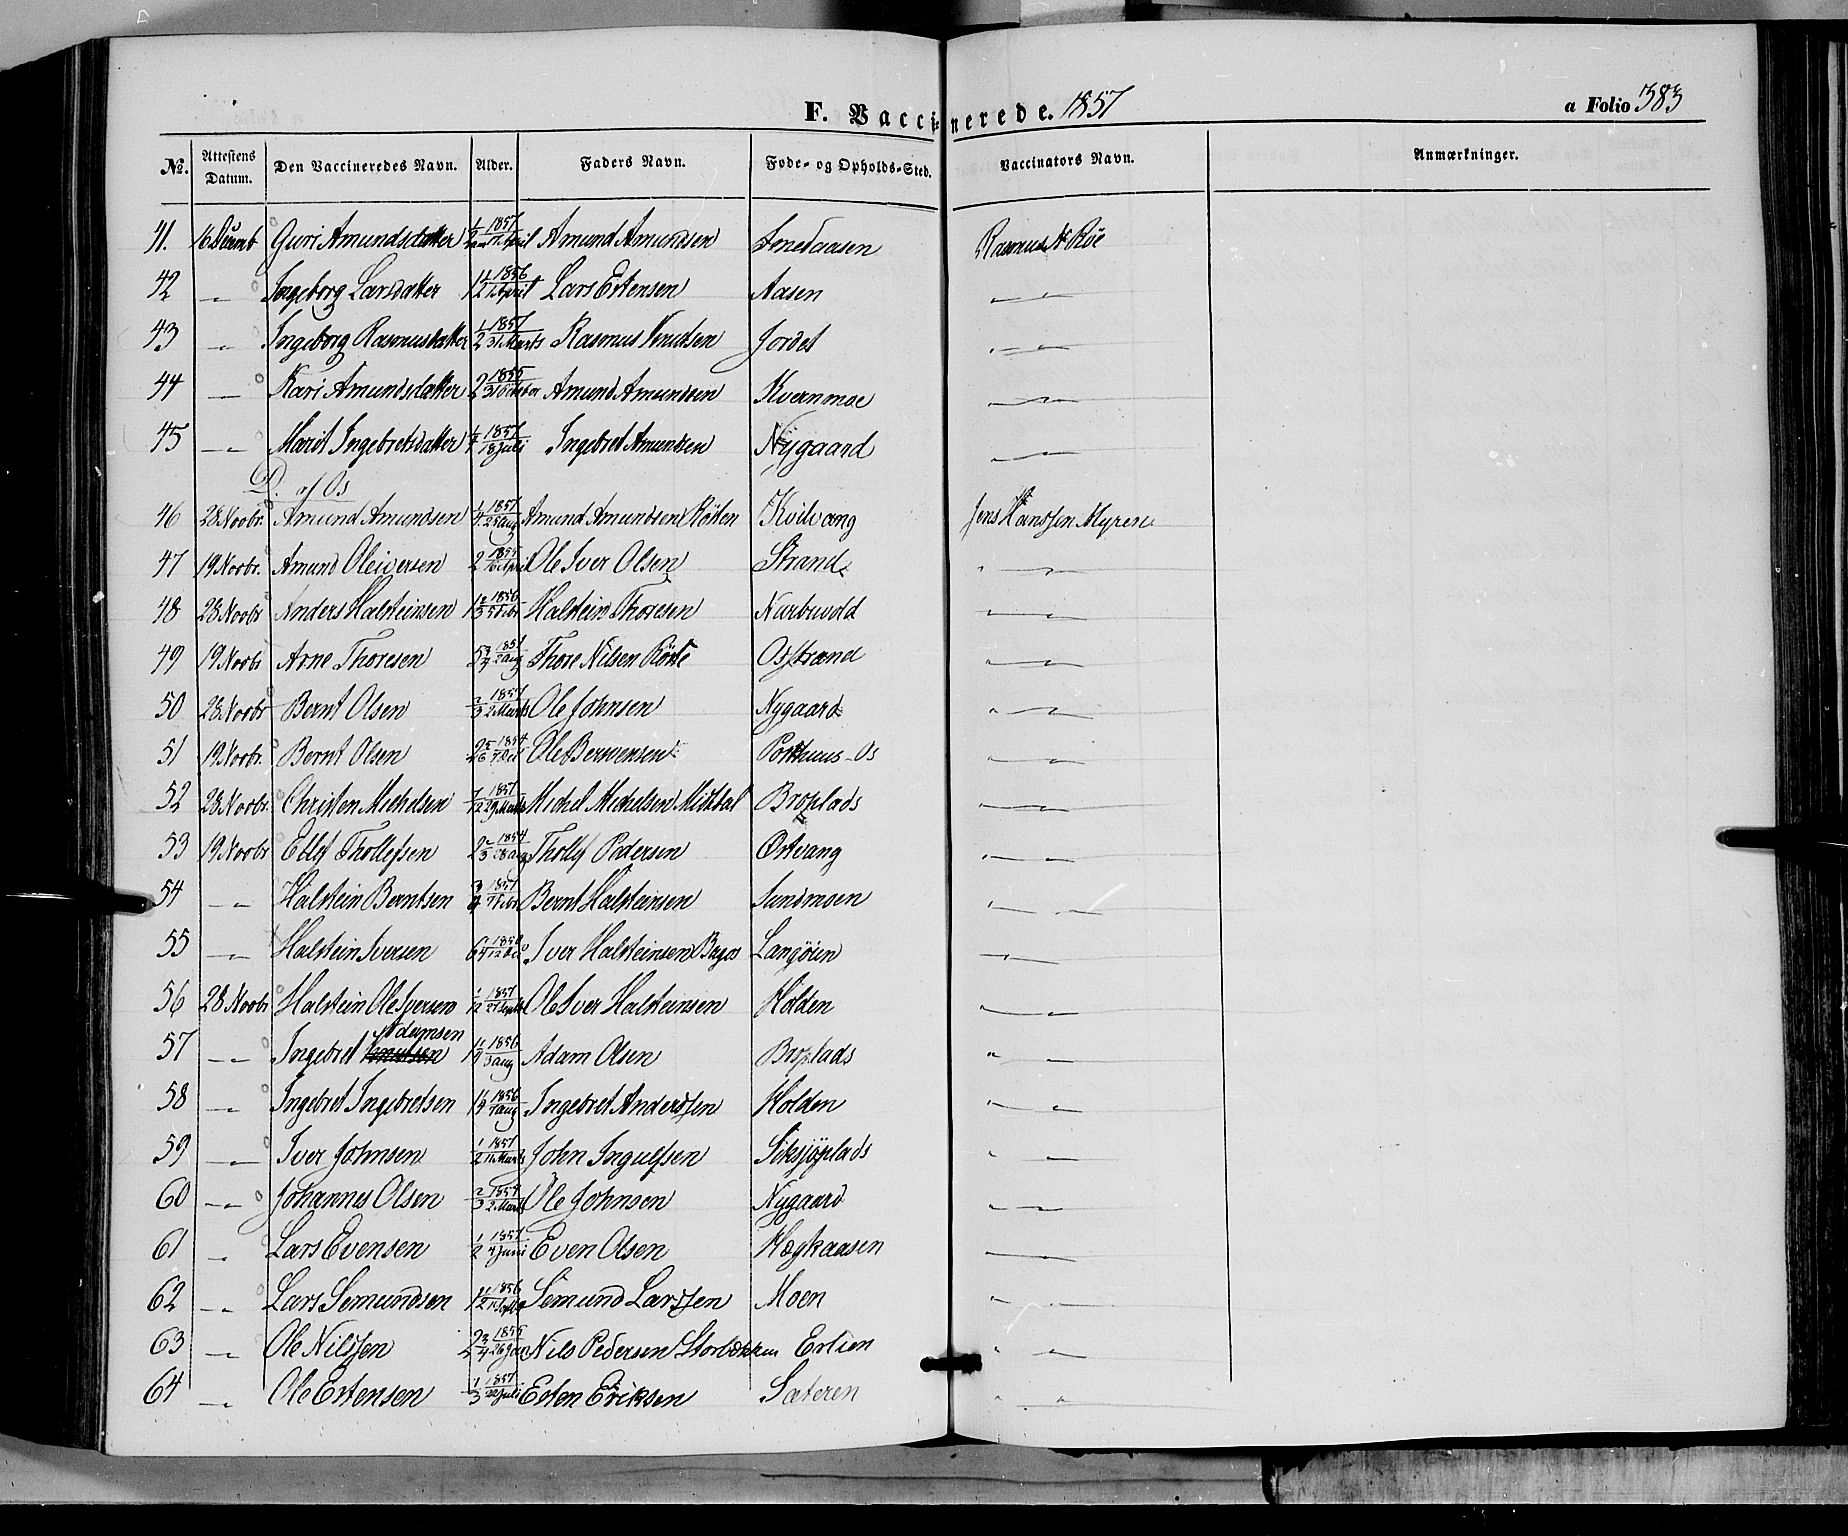 F. Vaccinerede. 1857
a Folio 383
No. Attestens Datum. Den Vaccineredes Navn. Alder. Faders Navn. Føde- og Opholds-Sted. Vaccinators Navn. Anmærkninger.
41. Guri Amundsdatter Amund Amundsen Rasmus N Röe
42 " Ingeborg Larsdatter 1 1/2 1856 1 April Lars Estensen Aasen — " —
43 " Ingeborg Rasmusdatter 1/2 1857 31 Marts Rasmus Knudsen Jordet " — " —
44 — " Kari Amundsdatter 2 1855 31 October Amund Amundsen Kvernmoe " — " —
45 — " Marit Ingebretsdatter 1/4 1857 18 Juli Ingebret Amundsen Nygaard " — " —
D. af Os
46 28 Novbr. Amund Amundsen 1/4 1857 25 Aug Amund Amundsen Rösten Kvilvang Jens Hanssen Myren
47 19 Novbr. Amund Oleiversen 2 1855 Ole Iver Olsen Strand " — " —
48 28 Novbr Anders Halsteinsen 1 2/3 1856 5 Febr Halstein Thoresen Narbuvold " — " —
49 19 Novbr Arne Thoresen 5 3/4 185 2 Aug Thore Nilsen Röste Osstrand " — " —
50 28 Novbr Bernt Olsen 2/3 1857 2 Marts Ole Johnsen Nygaard " — " —
51 19 Novbr. Bernt Olsen 2 5/6 1854 Ole Porthuus-Os " — " —
52 28 Novbr. Christen Michelsen 7/12 1857 29 Marts Michel Michelsen Midtdal Broplads — " —
53 19 Novbr Ellef Thollefsen 2 2/3 1854 28 Aug Thollf Pedersen Ostvang " — " —
54 — " Halstein Berntsen 3/4 1857 Febr Bernt Halsteinsen Sundmoen " — " —
55 — " Halstein Iversen 6 1850 12 Iver Halsteinsen Langöien — " —
56 28 Novbr Halstein Ole Iversen 1/12 1857 27 Septbr Ole Iver Halsteinsen Holden " — " —
Adamsen
57 — " Ingebret Knutsen 1 1/4 1856 3 Aug Adam Olsen Broplads " — " —
58 — " Ingebret Ingebretsen 1 1/4 1856 Aug Ingebret Anderssen Holden " — " —
59 — " Iver Johnsen 1/2 1857 11 Marts John Ingulfsen Siksjöplads " — " —
60 — " Johannes Olsen 2/3 1857 2 Marts Ole Johnsen Nygaard " — " —
61 " Lars Evensen 1/2 1857 4 Juni Even Olsen Hægkaasen — " —
62 — " Lars Semundsen 1856 Semund Larssen Moen " — " —
63 — " Ole Nilssen 2 3/4 1855 26 Jan Nils Pedersen Storbækken Erlien " — " —
64 — " Ole Estensen 1/3 1857 22 Juli Esten Eriksen Sæteren " "